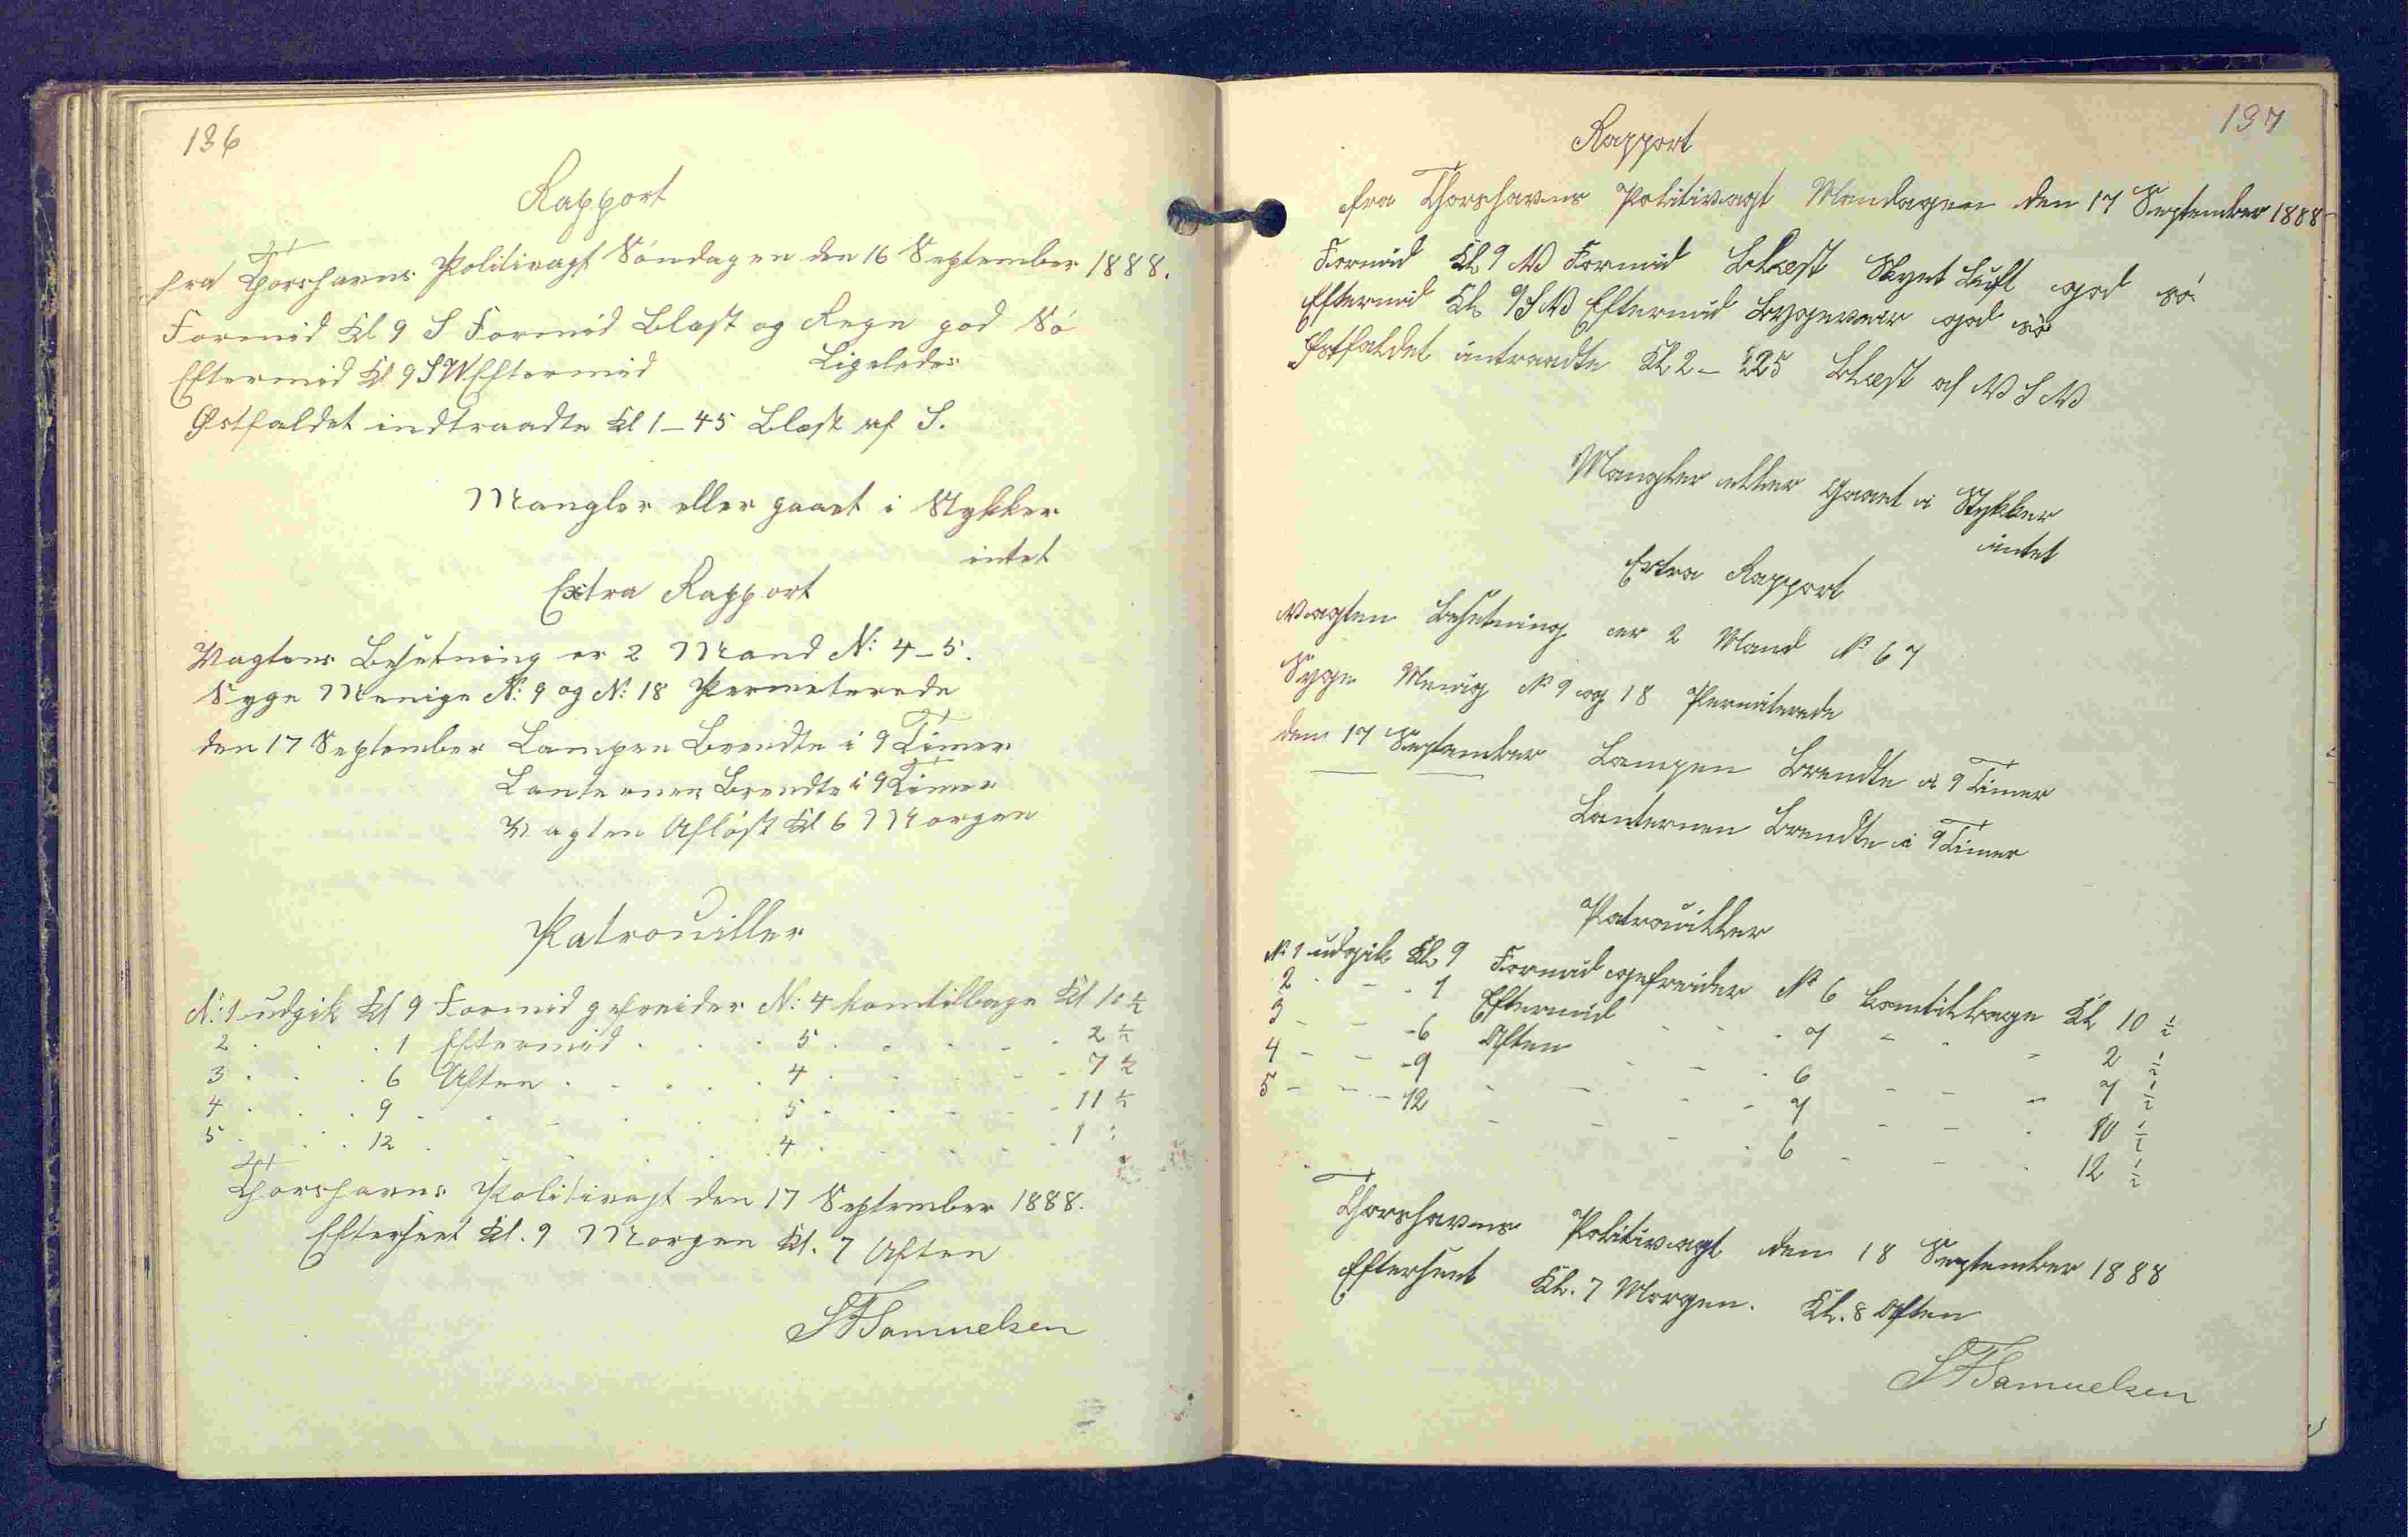 136
Rapport
fra Thorshavns Politivagt Søndagen den 16 September 1888.
Formid Kl 9 S Formid Blæst og Regn god Sö
Eftermid Kl 9 SW Eftermid Ligeledes
Østfaldet indtraadte Kl 1-45 Blæst af S.
Mangler eller gaaet i Stykker
intet
Extra Rapport
Vagtens Besetning er 2 Mand N: 4-5.
Syge Menige N: 9 og N: 18 Permiterede
den 17 September Lampen Brendte i 9 Timer
Lanternen Brendte i 9 Timer
Vagten Afløst Kl 6 Morgen
Patrouiller
N: 1 udgik Kl 9 Formid gefreider N: 4 komtilbage Kl 10 ½
2 . . . 1 Eftermid . . . 5 . . . . . 2 ½
3 . . . 6 Aften . . . . . 4 . . . . . 7 ½
4 . . . 9 . . . . . 5 . . . . . 11 ½
5 . . . 12 . . . . . 4 . . . . . 1 :
Thorshavns Politivagt den 17 September 1888.
Efterseet Kl. 9 Morgen Kl. 7 Aften
SF Samuelsen
137
Rapport
fra Thorshavns Politivagt Mandagen den 17 September 1888
Formid Kl 9 W Formid Blæst Skyet Luft god sö
Eftermid Kl 9 SW Eftermid Bygeveir god sö
Østfaldet intraadte Kl 2 - 25 Blæst af WSW
Mangler eller Gaaet i Stykker
intet
Extra Rapport
Vagten Besetning er 2 Mand No 6 7
Syge Menig No 9 og 18 Permiterede
den 17 September Lampen Brendte i 9 Timer
Lanternen Brendte i 9 Timer
Patrouiller
N: 1 udgik Kl 9 Formid gefreider No 6 komtilbage Kl 10 ½
2 - - - 1 Eftermid - - - 7 - - - 2 ½
3 - - - 6 Aften - - - 6 - - - 7 ½
4 - - - 9 - - - - 7 - - - 10 ½
5 - - - 12 - - - - 6 - - - 12 ½
Thorshavns Politivagt den 18 September 1888
Efterseet Kl. 7 Morgen. Kl. 8 Aften
SF Samuelsen